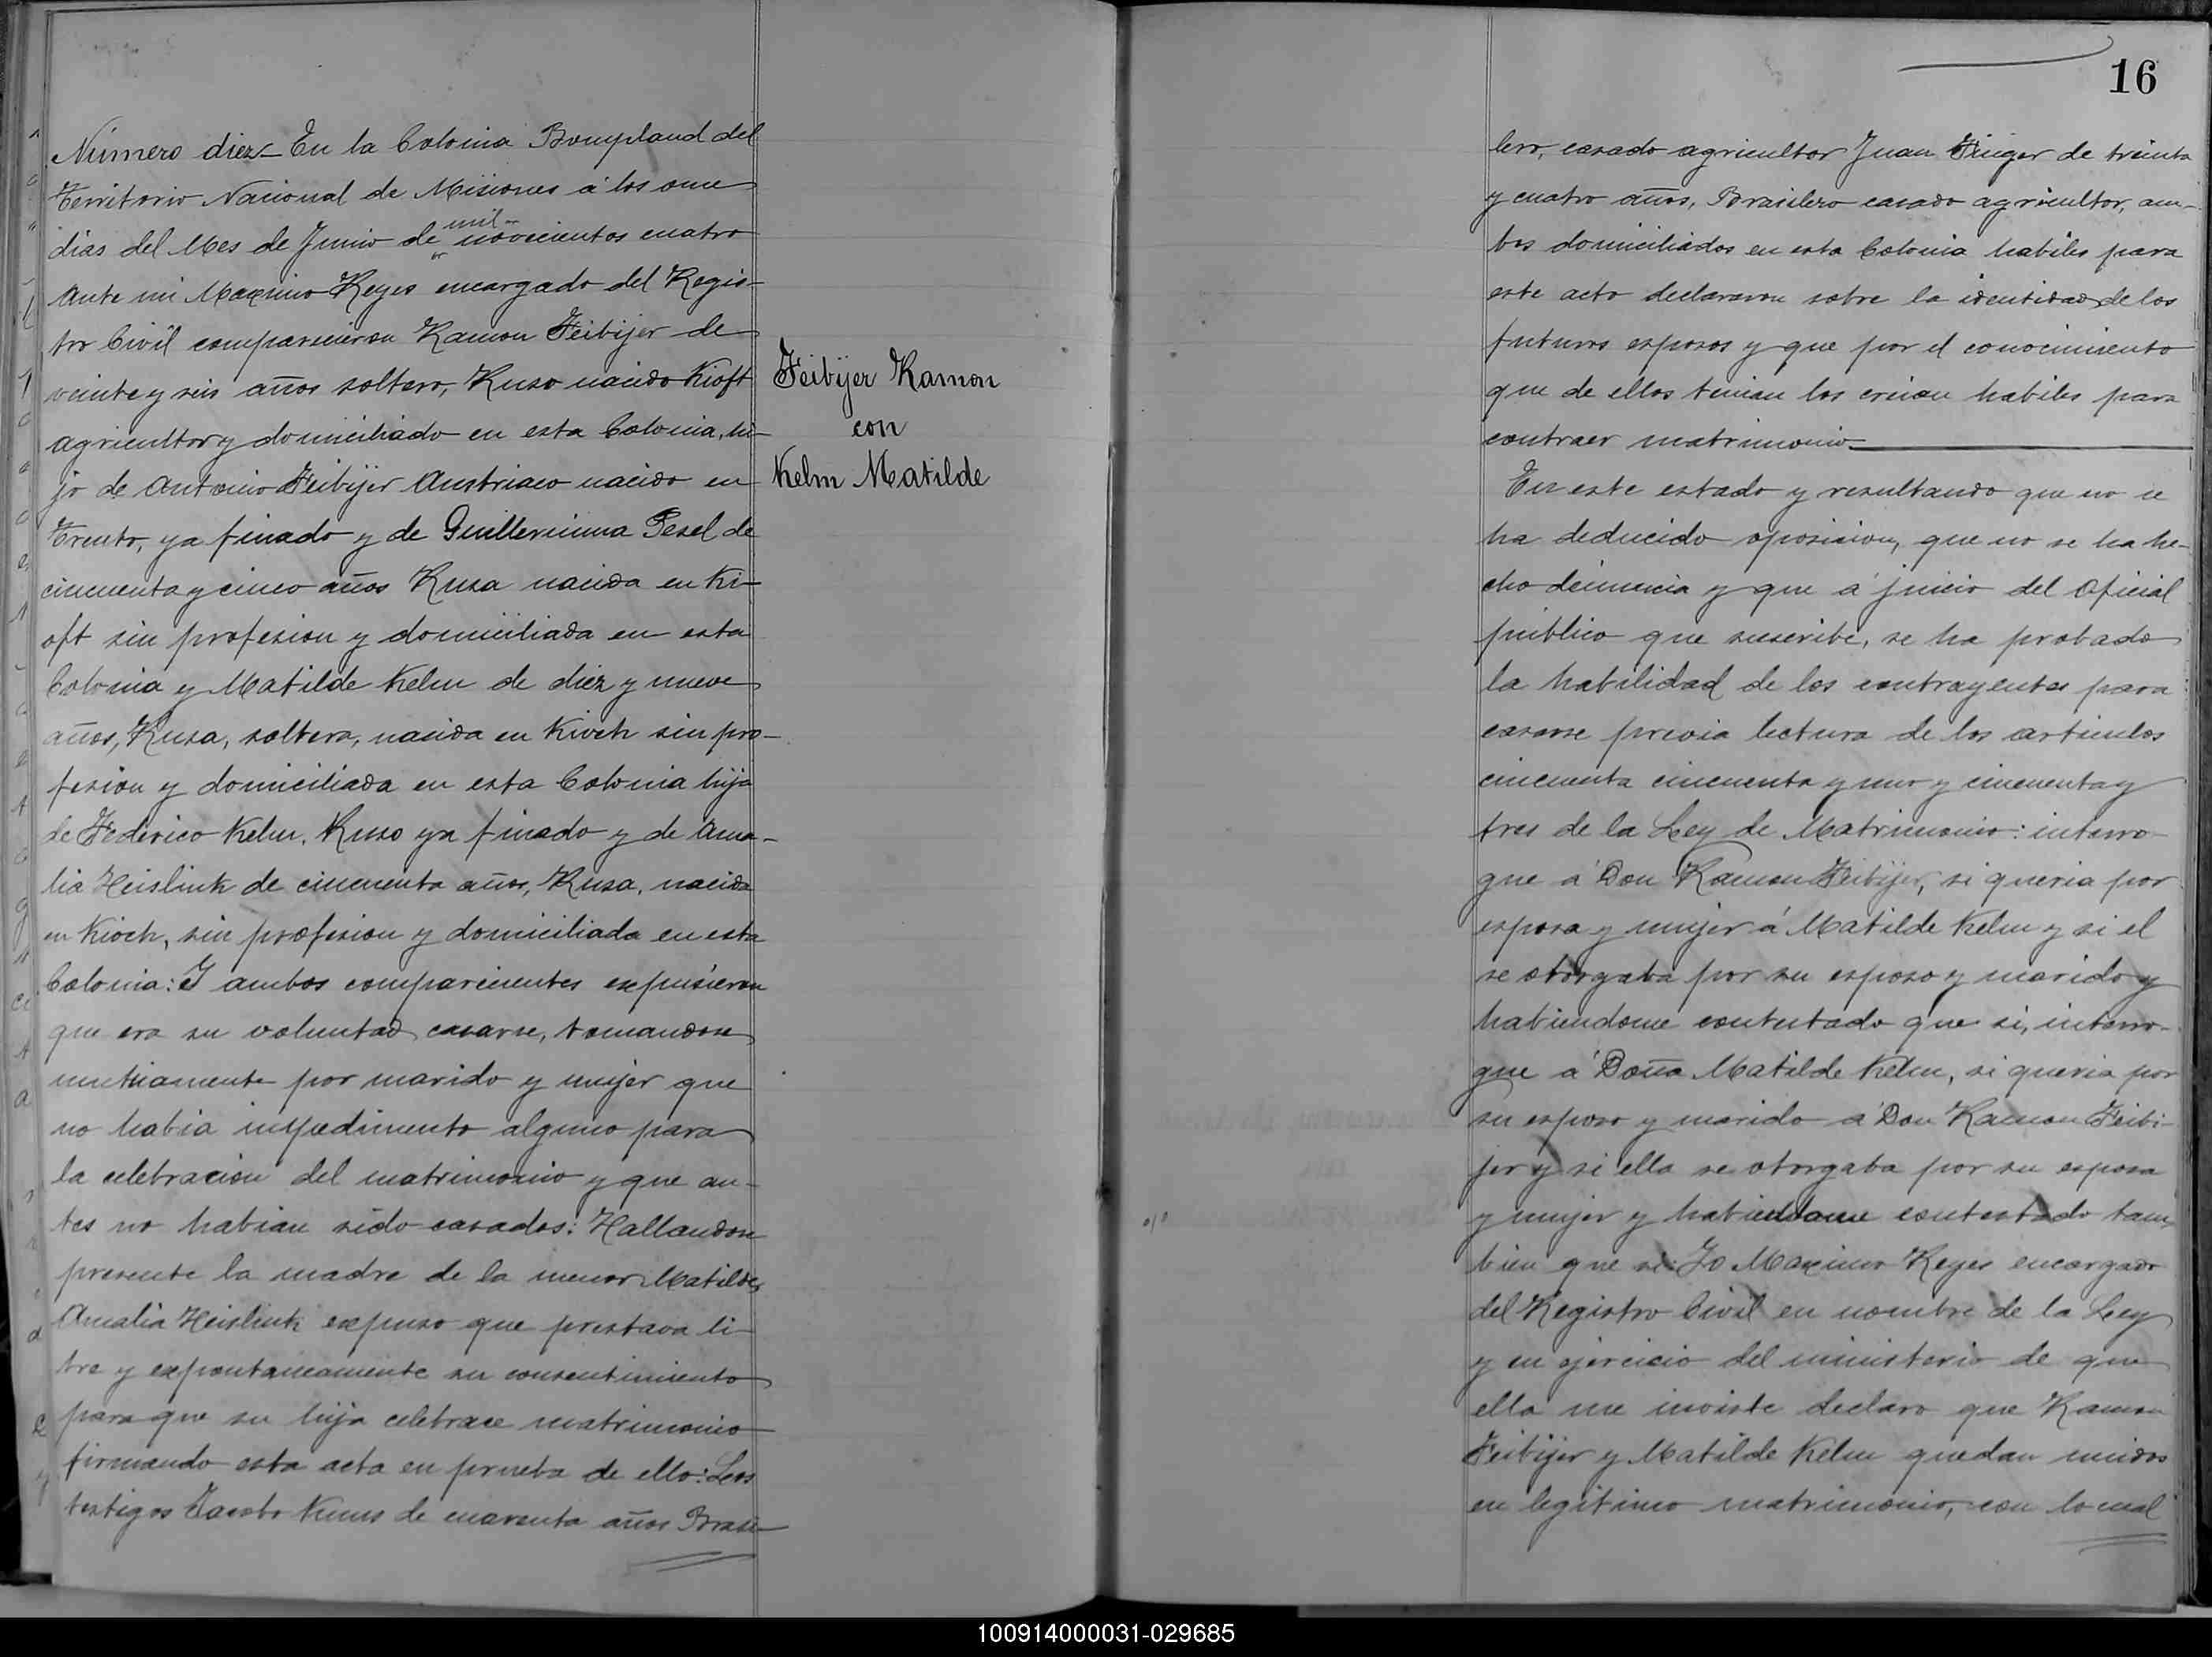 Número diez_ En la Colonia Bompland del
Territorio Nacional de Misiones á los once
dias del Mes de Junio de mil novecientos cuatro
Ante mi Maximo Reyes encargado del Regis-
tro Civil comparecieron Ramon Feibijer de
veinte y seis años soltero, Ruso nacido Kioft
agricultor y domiciliado en esta Colonia, hi-
jo de Antonio Feibijer Austriaco nacido en
Trento, ya finado y de Guillermina Pesel de
cincuenta y cinco años Rusa nacida en Ki-
oft sin profesion y domiciliada en esta
Colonia y Matilde Kelm de diez y nueve
años, Rusa, soltera, nacida en Kioch sin pro-
fesion y domiciliada en esta Colonia hija
de Federico Kelm, Ruso ya finado y de Ama-
lia Heislink de cincuenta años, Rusa, nacida
en Kioch, sin profesion y domiciliada en esta
Colonia: Y ambos comparecientes expusieron
que era su voluntad casarse, tomandose
mutuamente por marido y mujer que
no habia impedimento alguno para
la celebracion del matrimonio y que an-
tes no habian sido casados: Hallandose
presente la madre de la menor Matilde,
Amalia Heislink expuso que prestava li-
bre y expontaneamente su consentimiento
para que su hija celebrace matrimonio
firmando esta acta en prueba de ello: Los
testigos Jacobo Kuns de cuarenta años Brasi-
Feibijer Ramon
con
Kelm Matilde
16
lero, casado agricultor Juan Finger de treinta
y cuatro años, Brasilero casado agricultor, am-
bos domiciliados en esta Colonia habiles para
este acto declararon sobre la identidad de los
futuros esposos y que por el conocimiento
que de ellos tenian los creian habiles para
contraer matrimonio
En este estado y resultando que no se
ha deducido oposicion, que no se ha he-
cho denuncia y que á juicio del Oficial
publico que suscribe, se ha probado
la habilidad de los contrayentes para
casarse previa lectura de los articulos
cincuenta cincuenta y uno y cincuenta y
tres de la Ley de Matrimonio: interro-
gue á Don Ramon Feibijer, si queria por
esposa y mujer á Matilde Kelm y si el
se otorgaba por su esposo y marido y
habiendome contestado que si, interro-
gue á Doña Matilde Kelm, si queria por
su esposo y marido á Don Ramon Feibi-
jer y si ella se otorgaba por su esposa
y mujer y habiendome contestado tam-
bien que si: Yo Maximo Reyes encargado
del Registro Civil en nombre de la Ley
y en ejercicio del ministerio de que
ella me inviste declaro que Ramon
Feibijer y Matilde Kelm quedan unidos
en legitimo matrimonio, con lo cual
100914000031-029685